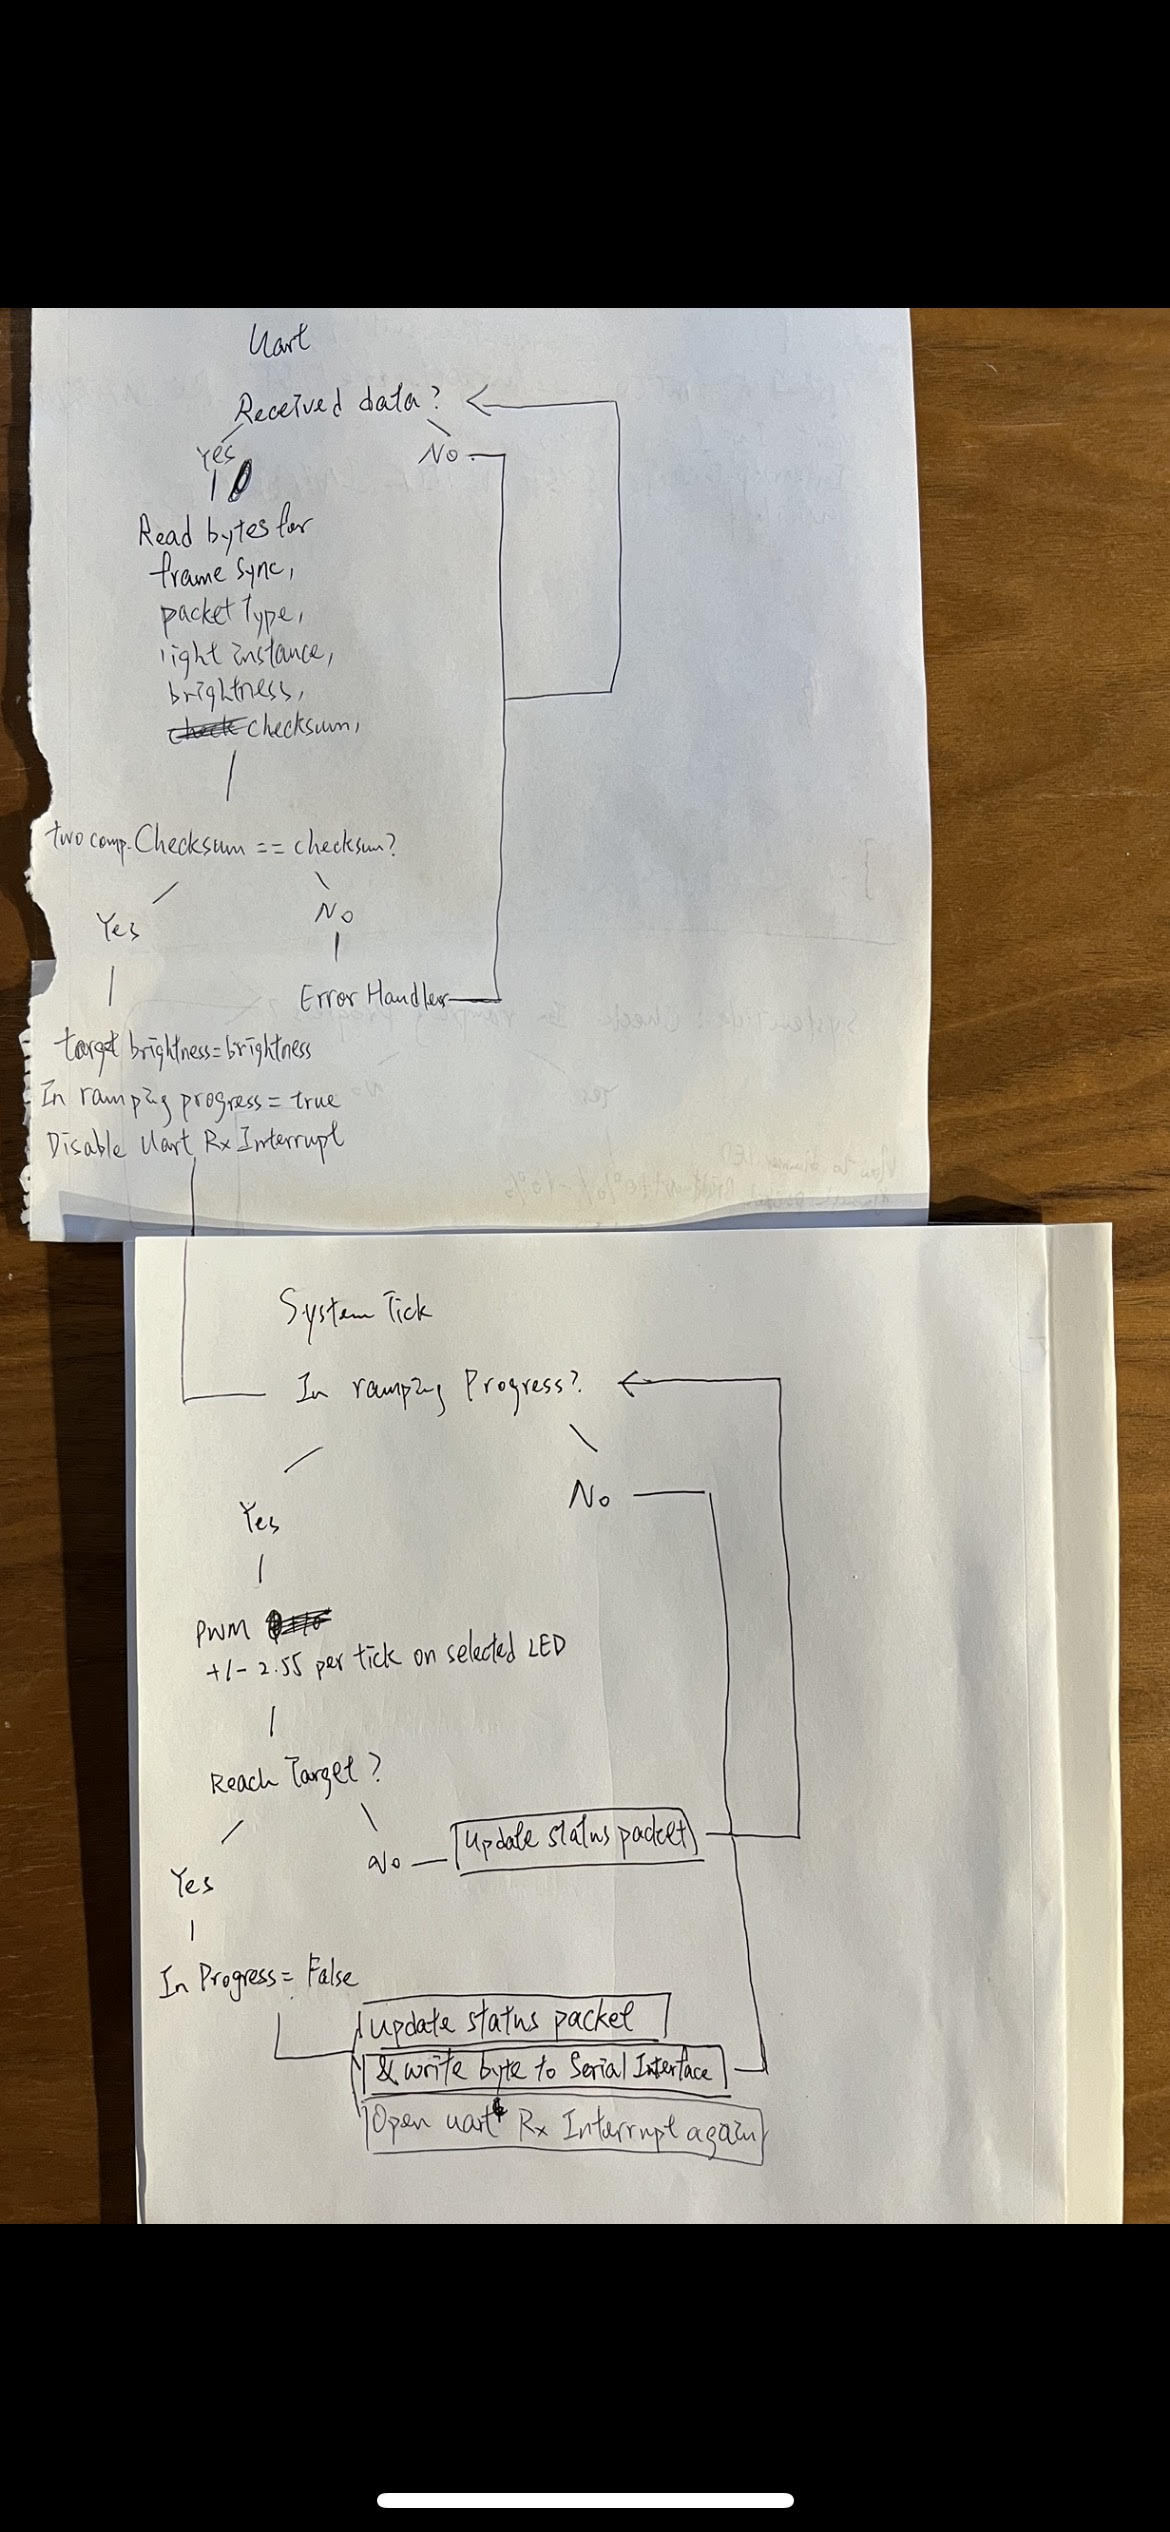 Uart
Received data?
Yes
No
Read bytes for
frame sync,
packet type,
light instance,
brightness,
check checksum,
two comp. Checksum == checksum?
Yes
No
Error Handler
target brightness = brightness
In ramping progress = true
Disable Uart Rx Interrupt
System Tick
In ramping Progress?
Yes
No
PWM
+/- 2.55 per tick on selected LED
Reach Target?
Yes
No
update status packet
In Progress = False
update status packet
& write byte to Serial Interface
Open uart Rx Interrupt again